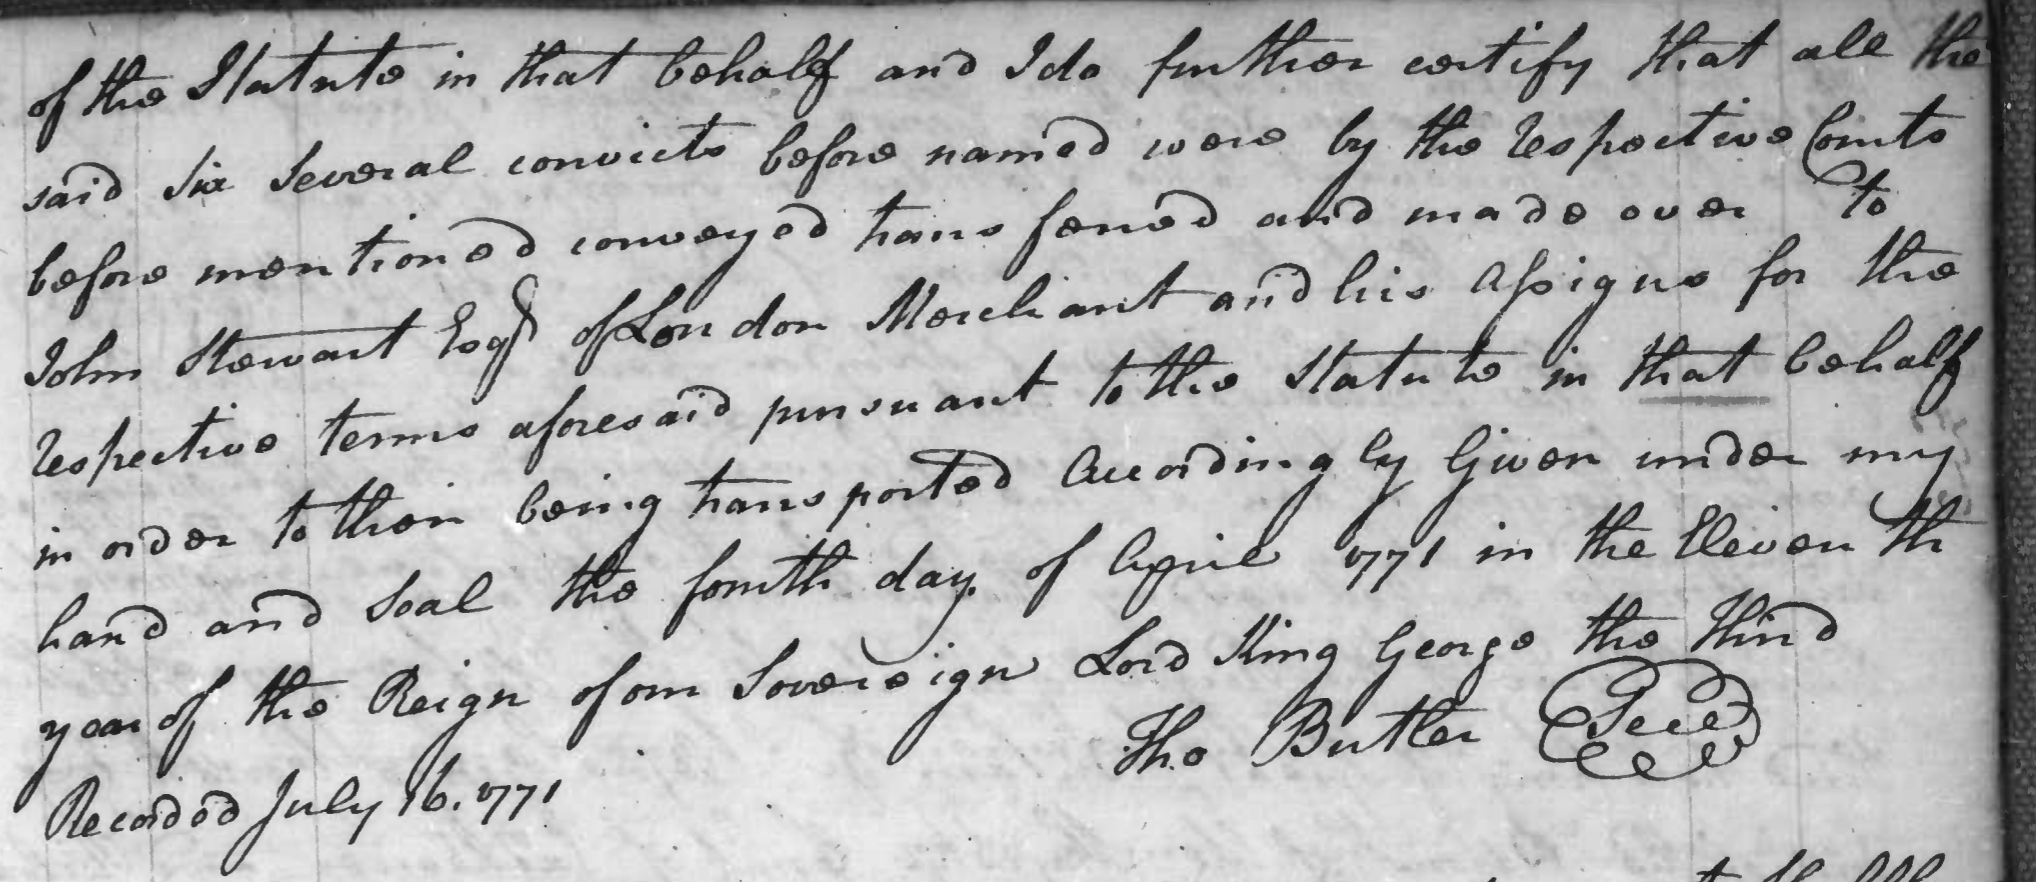 of the Statute in that behalf and I do further certify that all the
said Six Several convicts before named were by the respective Courts
before mentioned conveyed transferred and made over to
John Stewart Esqr of London Merchant and his Assigns for the
respective terms aforesaid pursuant to the Statute in that behalf
in order to their being transported Accordingly Given under my
hand and Seal the fourth day of April 1771 in the Eleventh
year of the Reign of our Sovereign Lord King George the Third
Tho Butler Seal
Recorded July 16. 1771